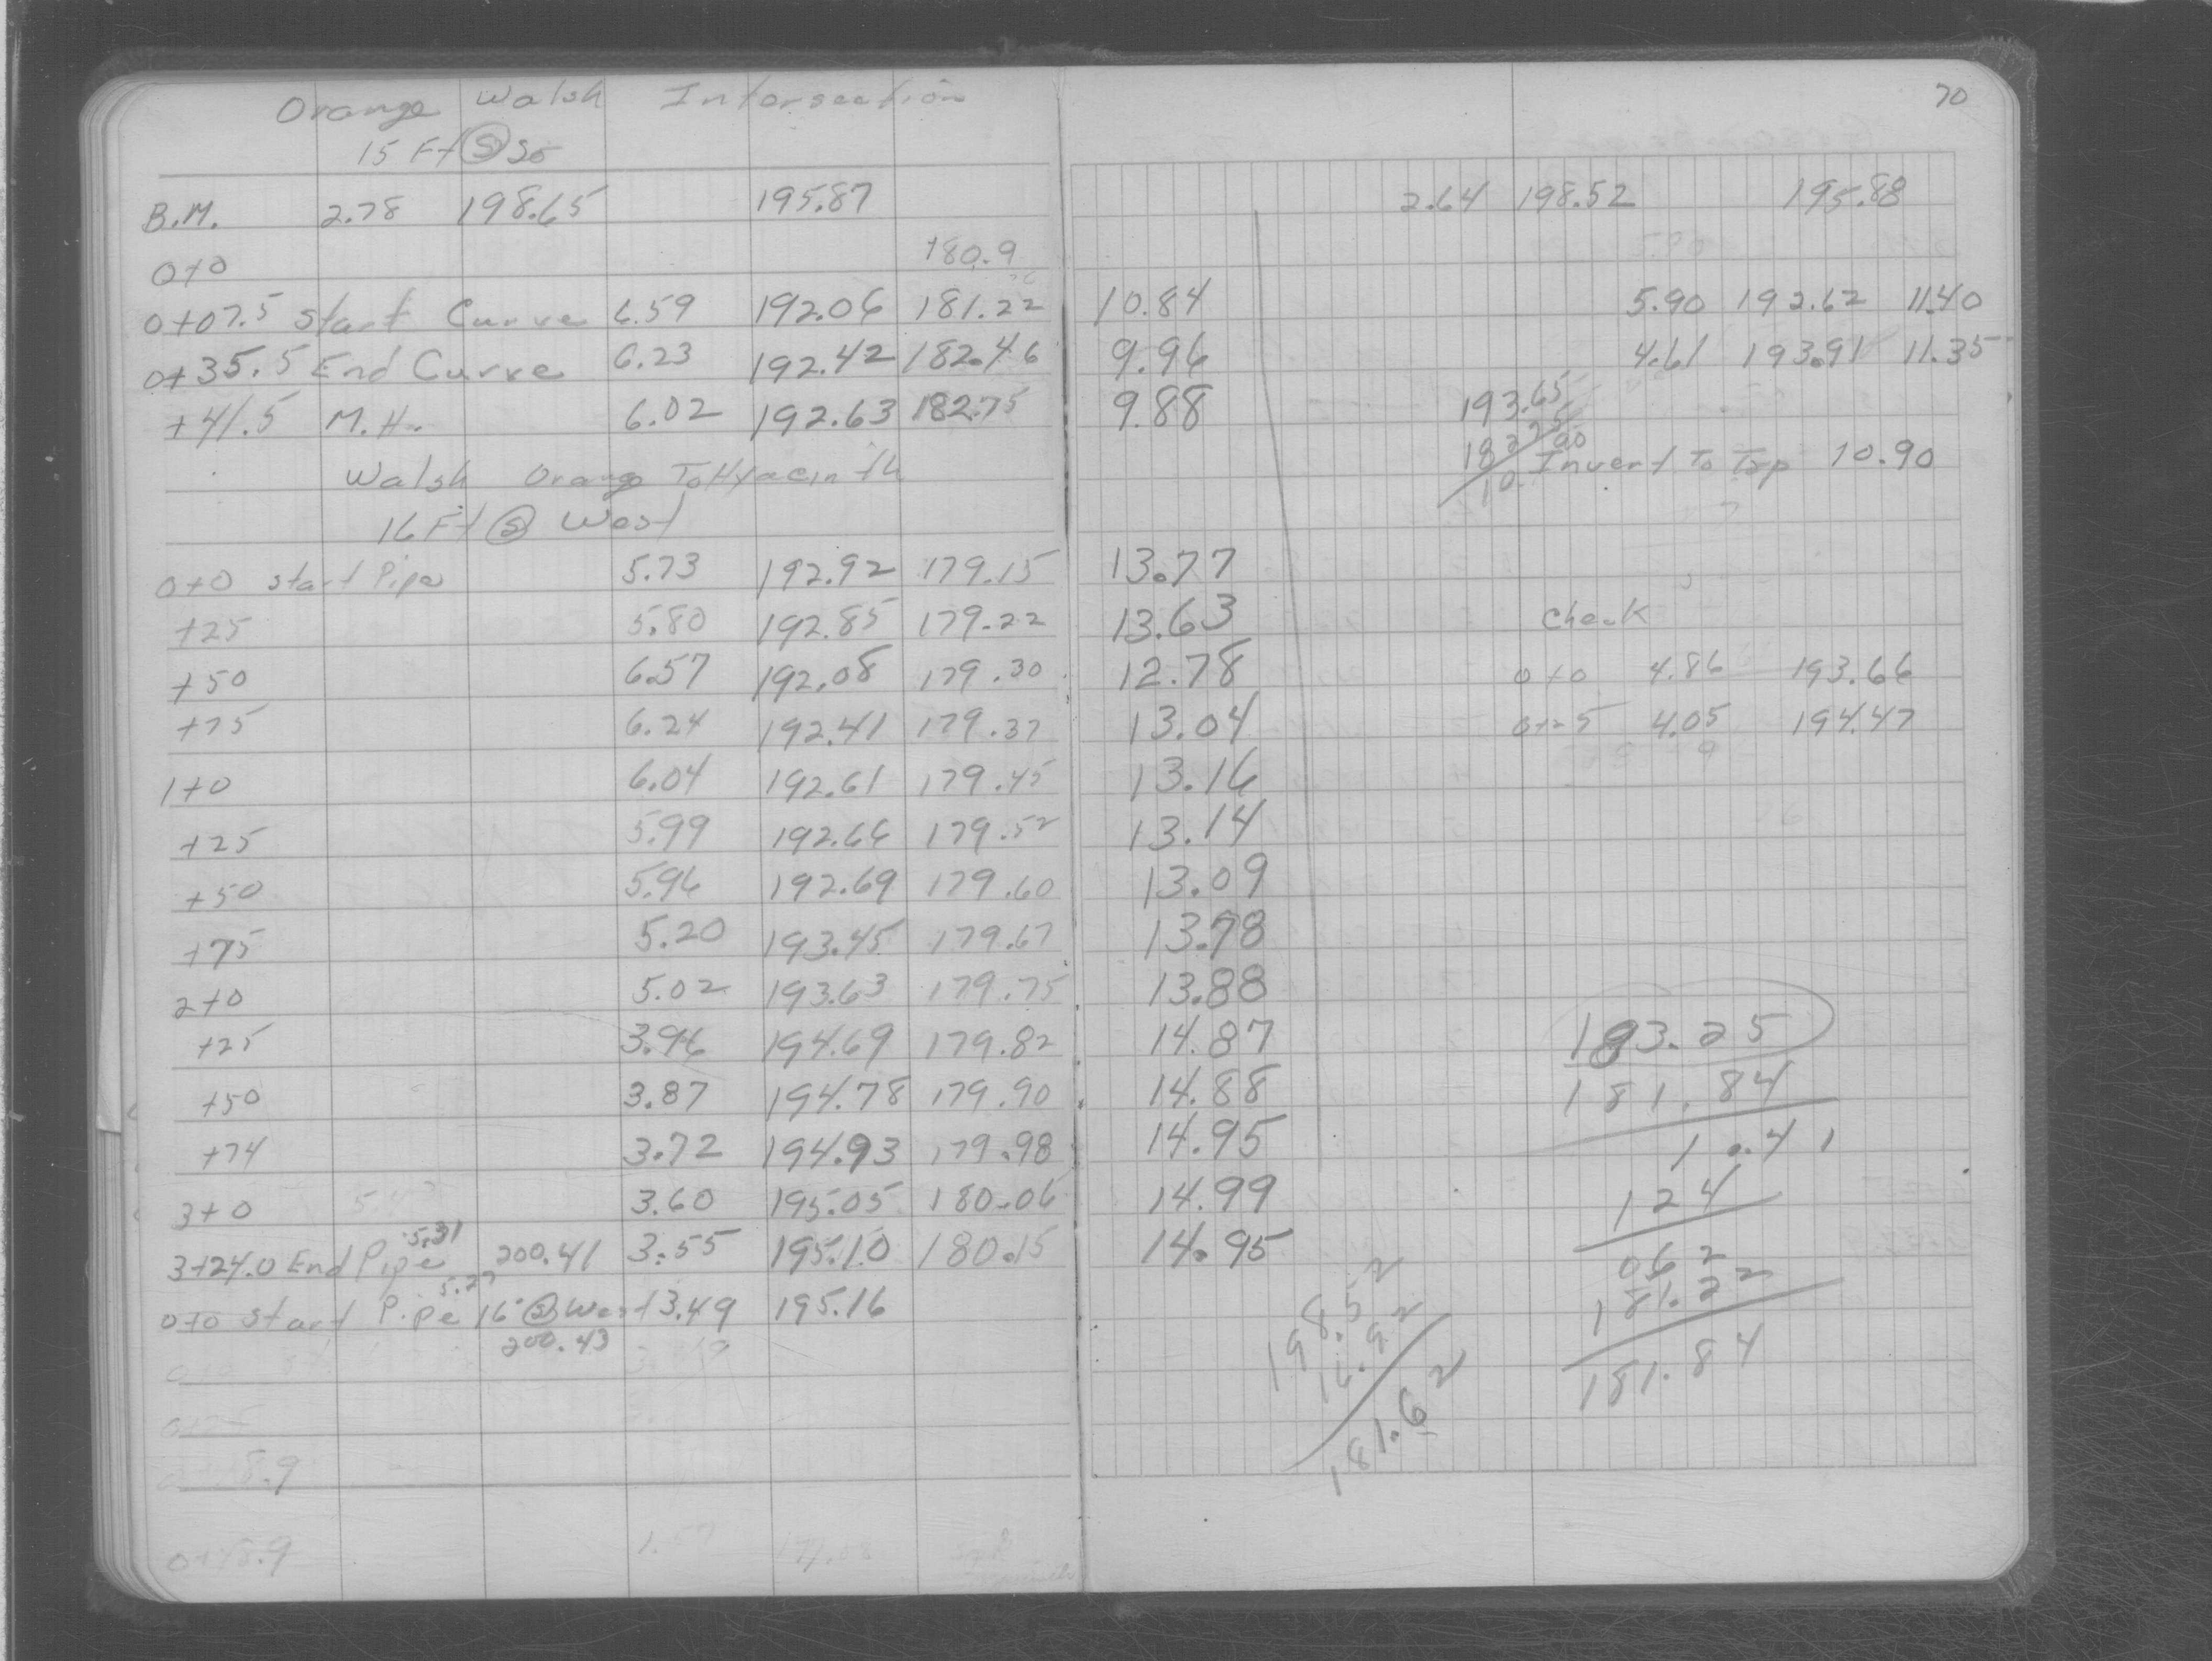 Orange Walsh Intersection
15 Ft Ⓢ So
B.M. 2.78 198.65 195.87
0+0 180.9
0+07.5 Start Curve 6.59 192.06 181.22 10.84
0+35.5 End Curve 6.23 192.42 182.46 9.96
+41.5 M.H. 6.02 192.63 182.75 9.88
Walsh Orange To Hyacinth
16 Ft Ⓢ West
0+0 Start Pipe 5.73 192.92 179.15 13.77
+25 5.80 192.85 179.22 13.63
+50 6.57 192.08 179.30 12.78
+75 6.24 192.41 179.37 13.04
1+0 6.04 192.61 179.45 13.16
+25 5.99 192.66 179.52 13.14
+50 5.96 192.69 179.60 13.09
+75 5.20 193.45 179.67 13.78
2+0 5.02 193.63 179.75 13.88
+25 3.96 194.69 179.82 14.87
+50 3.87 194.78 179.90 14.88
+74 3.72 194.93 179.98 14.95
3+0 3.60 195.05 180.06 14.99
5.31
3+24.0 End Pipe 200.41 3.55 195.10 180.15 14.95
5.27
0+0 Start Pipe 16' Ⓢ West 3.49 195.16
200.43
70
2.64 198.52 195.88
5.90 192.62 11.40
4.61 193.91 11.35
193.65
Invert To Top 10.90
Check
0+0 4.86 193.66
0+25 4.05 194.47
193.25
181.84
1.41
124
062
181.22
181.84
198.52
16.92
181.62